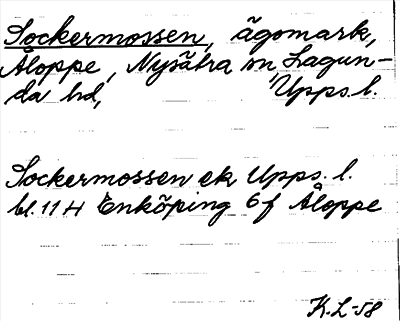 Sockermossen, ägomark,
Åloppe, Nysätra sn Lagun-
da hd, Upps. l.
Sockermossen ek Upps. l.
bl. 11 H Enköping 6 f Åloppe
K.L-58